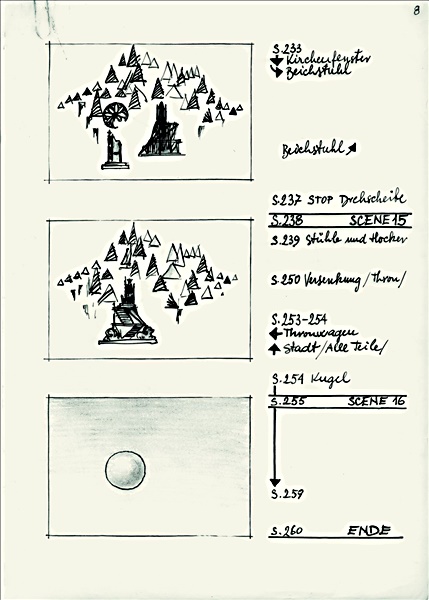 8
S.233
Kirchenfenster
Beichstuhl
Beichstuhl
S.237 STOP Drehscheibe
S.238 SCENE 15
S.239 Stühle und Hocker
S.250 Versenkung/Thron/
S.253-254
Thronwagen
Stadt/Alle Teile/
S.254 Kugel
S.255 SCENE 16
S.259
S.260 ENDE